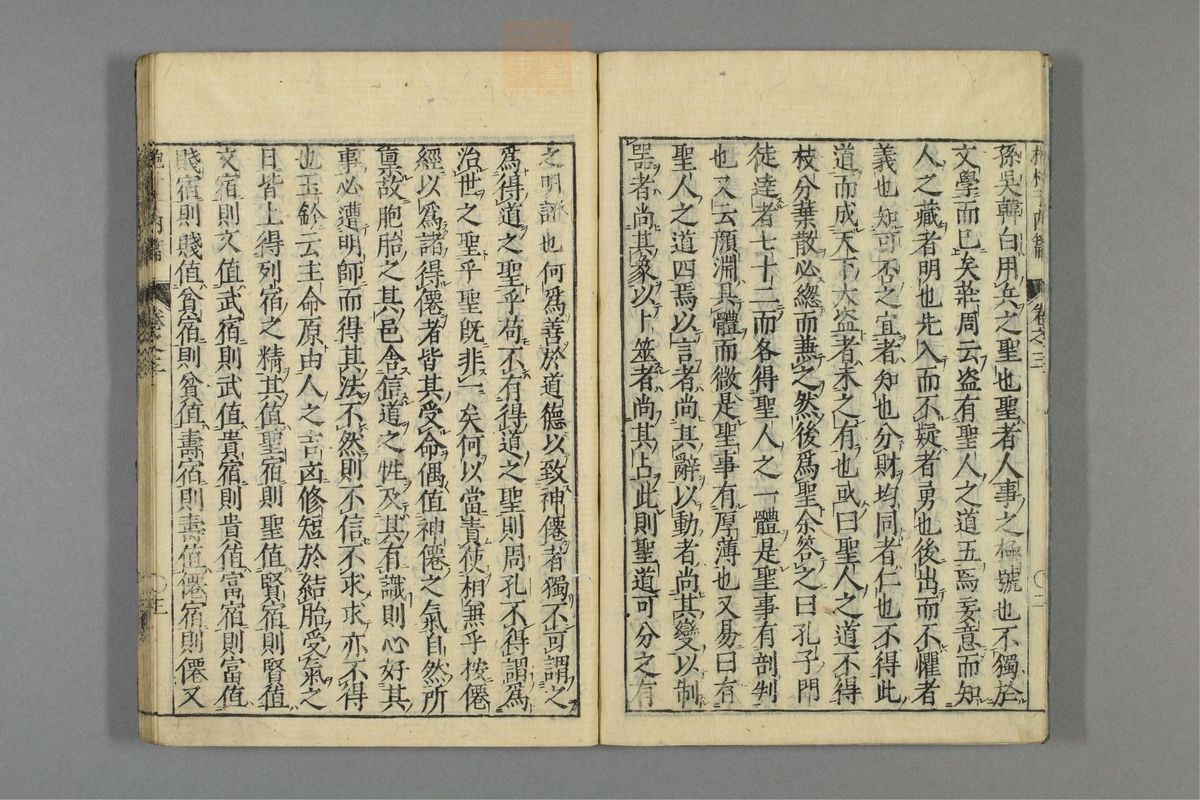 孫吳韓白用兵之聖也聖者人事之極號也不獨於
文學而已矣莊周云盗有聖人之道五焉妄意而知
人之藏者明也先入而不疑者勇也後出而不懼者
義也知可否之宜者知也分財均同者仁也不得此
道而成天下大盗者未之有也或曰聖人之道不得
枝分葉散必緫而兼之然後爲聖余答之曰孔子門
徒達者七十二而各得聖人之一體是聖事有剖判
也又云顏淵具體而微是聖事有厚薄也又易曰有
聖人之道四焉以言者尚其辭以動者尚其變以制
噐者尚其象以卜筮者尚其占此則聖道可分之有
之明證也何爲善於道德以致神僊者獨不可謂之
爲得道之聖乎苟不有得道之聖則周孔不得謂爲
治世之聖乎聖旣非一矣何以當責使相無乎按僊
經以爲諸得僊者皆其受命偶值神僊之氣自然所
禀故胞胎之其邑含信道之性及其有識則心好其
事必遭明師而得其法不然則不信不求求亦不得
也玉鈐云主命原由人之吉凶修短於結胎受氣之
日皆上得列宿之精其值聖宿則聖值賢宿則賢值
文宿則文值武宿則武值貴宿則貴值富宿則富值
賤宿則賤值貧宿則貧值壽宿則壽值僊宿則僊又